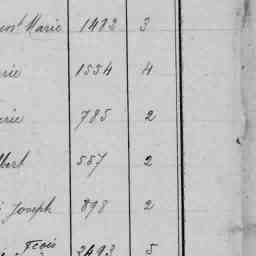 Marie 1482 3
rie 1554 4
rie 785 2
bert 557 2
Joseph 898 2
Fcois 2493 5